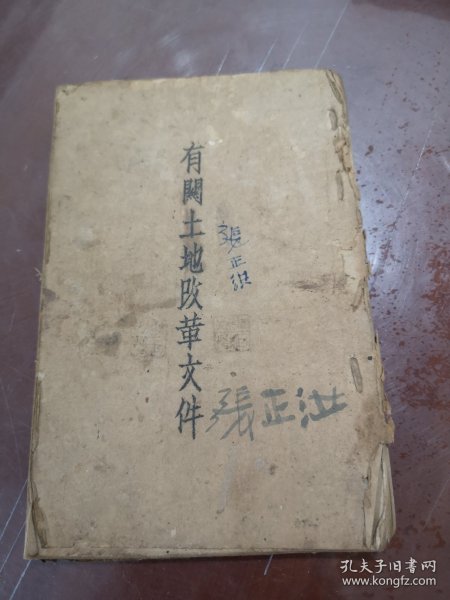 有關土地改革文件
張正洪
張正洪
孔夫子旧书网
www.kongfz.com